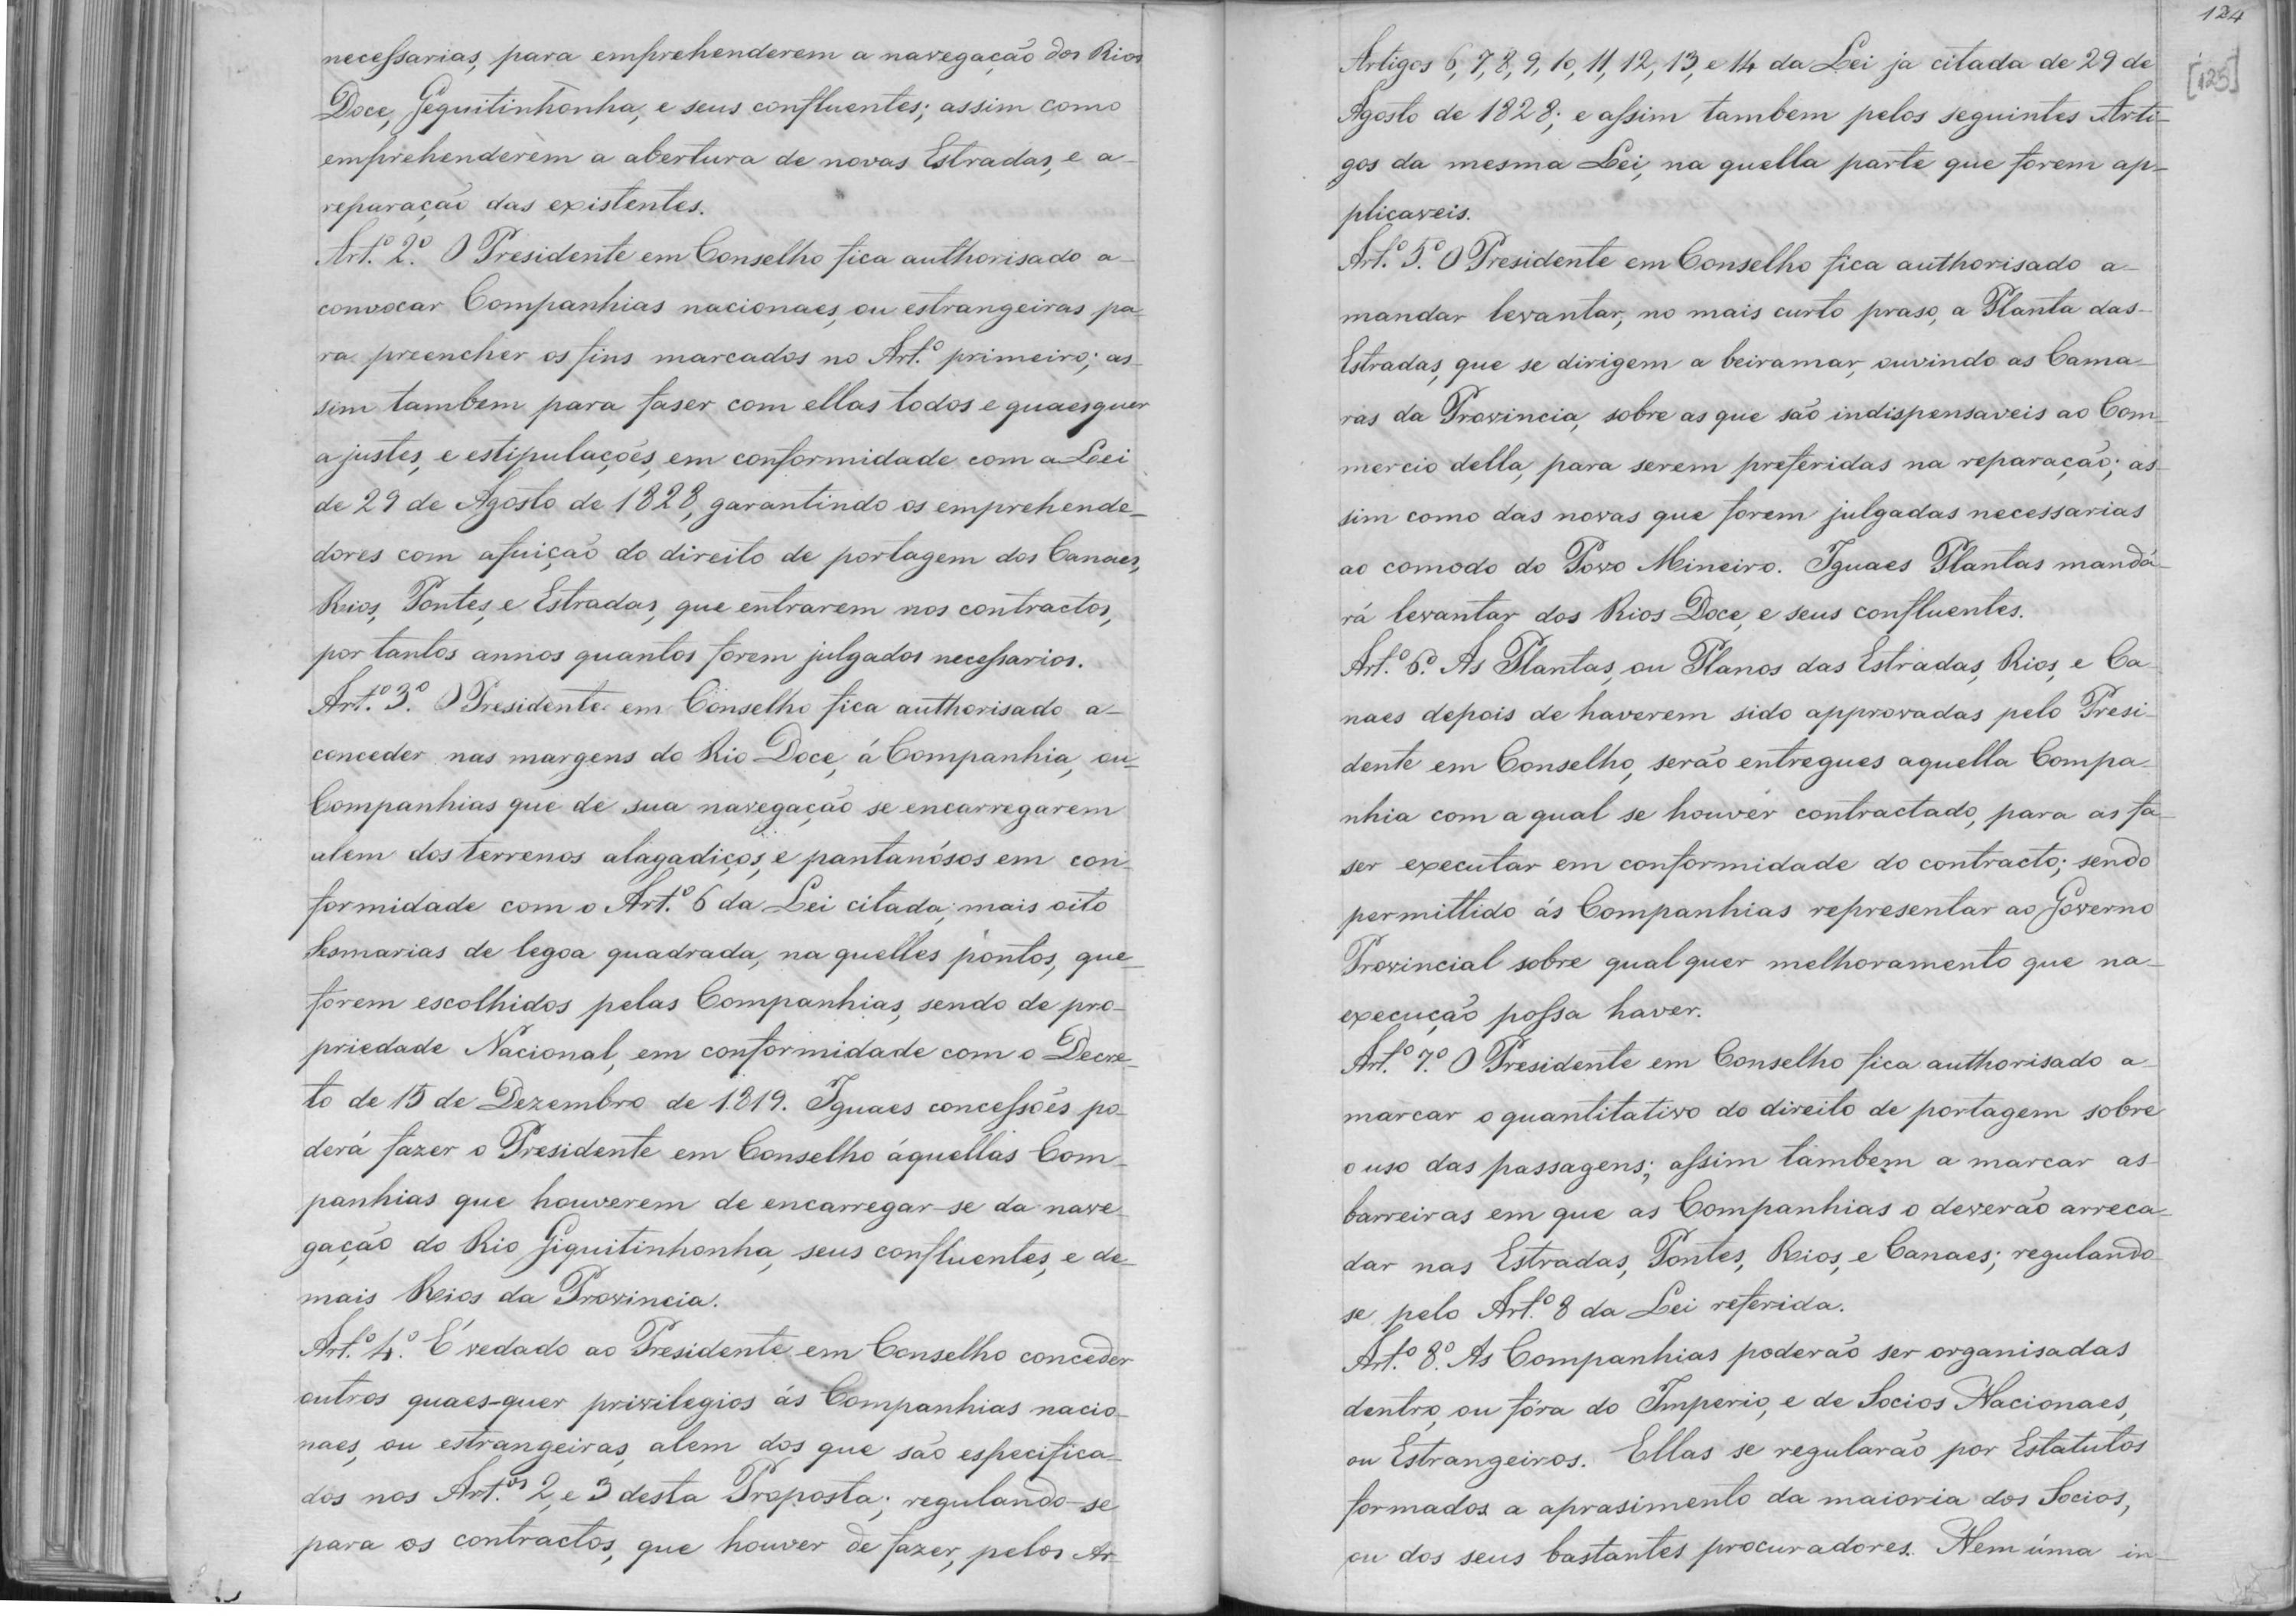 necessarias, para emprehenderem a navegação dos Rios
Doce, Gequitinhònha, e seus confluentes; assim como
emprehenderem a abertura de novas Estradas, e a-
reparação das existentes.
Art.º 2.º O Presidente em Conselho fica authorisado a-
convocar Companhias nacionaes, ou estrangeiras pa-
ra preencher os fins marcados no Art.º primeiro; as-
sim tambem para faser com ellas todos e quaesquer
ajustes, e estipulações, em conformidade com a Lei
de 29 de Agosto de 1828, garantindo os emprehende-
dores com afuição do direito de portagem dos Canaes,
Rios, Pontes, e Estradas, que entrarem nos contractos,
por tantos annos quantos forem julgados necessarios.
Art.º 3.º O Presidente em Conselho fica authorisado a-
conceder nas margens do Rio Doce, á Companhia, ou-
Companhias que de sua navegação se encarregarem
alem dos terrenos alagadiços, e pantanósos em con-
formidade com o Art.º 6 da Lei citada; mais oito
Sesmarias de legoa quadrada, na quelles pontos, que-
forem escolhidos pelas Companhias, sendo de pro-
priedade Nacional, em conformidade com o Decre-
to de 15 de Dezembro de 1819. Iguaes concessões po-
derá fazer o Presidente em Conselho áquellas Com-
panhias que houverem de encarregar-se da nave-
gação do Rio Giquitinhonha, seus confluentes, e de-
mais Rios da Provincia.
Art.º 4.º É vedado ao Presidente em Conselho conceder
outros quaes-quer privilegios ás Companhias nacio-
naes, ou estrangeiras, alem dos que são especifica-
dos nos Art.os 2, e 3 desta Proposta; regulando-se
para os contractos, que houver de fazer, pelos Ar-
124
[125]
Artigos 6, 7, 8, 9, 10, 11, 12, 13, e 14 da Lei ja citada de 29 de
Agosto de 1828; e assim tambem pelos seguintes Arti-
gos da mesma Lei, na quella parte que forem ap-
plicaveis.
Art.º 5.º O Presidente em Conselho fica authorisado a-
mandar levantar, no mais curto praso, a Planta das-
Estradas, que se dirigem a beiramar, ouvindo as Cama-
ras da Provincia, sobre as que são indispensaveis ao Com-
mercio della, para serem preferidas na reparação; as-
sim como das novas que forem julgadas necessarias
ao comodo do Povo Mineiro. Iguaes Plantas manda-
rá levantar dos Rios Doce, e seus confluentes.
Art.º 6.º As Plantas, ou Planos das Estradas, Rios, e Ca-
naes depois de haverem sido approvadas pelo Presi-
dente em Conselho, serão entregues aquella Compa-
nhia com a qual se houver contractado, para as fa-
ser executar em conformidade do contracto; sendo
permittido ás Companhias representar ao Governo
Provincial sobre qual quer melhoramento que na-
execução possa haver.
Art.º 7.º O Presidente em Conselho fica authorisado a-
marcar o quantitativo do direito de portagem sobre
o uso das passagens; assim tambem a marcar as-
barreiras em que as Companhias o deverão arreca-
dar nas Estradas, Pontes, Rios, e Canaes; regulando-
se pelo Art.º 8 da Lei referida.
Art.º 8.º As Companhias poderão ser organisadas
dentro, ou fóra do Imperio, e de Socios Nacionaes,
ou Estrangeiros. Ellas se regularão por Estatutos
formados a aprasimento da maioria dos Socios,
ou dos seus bastantes procuradores. Nem úma in-